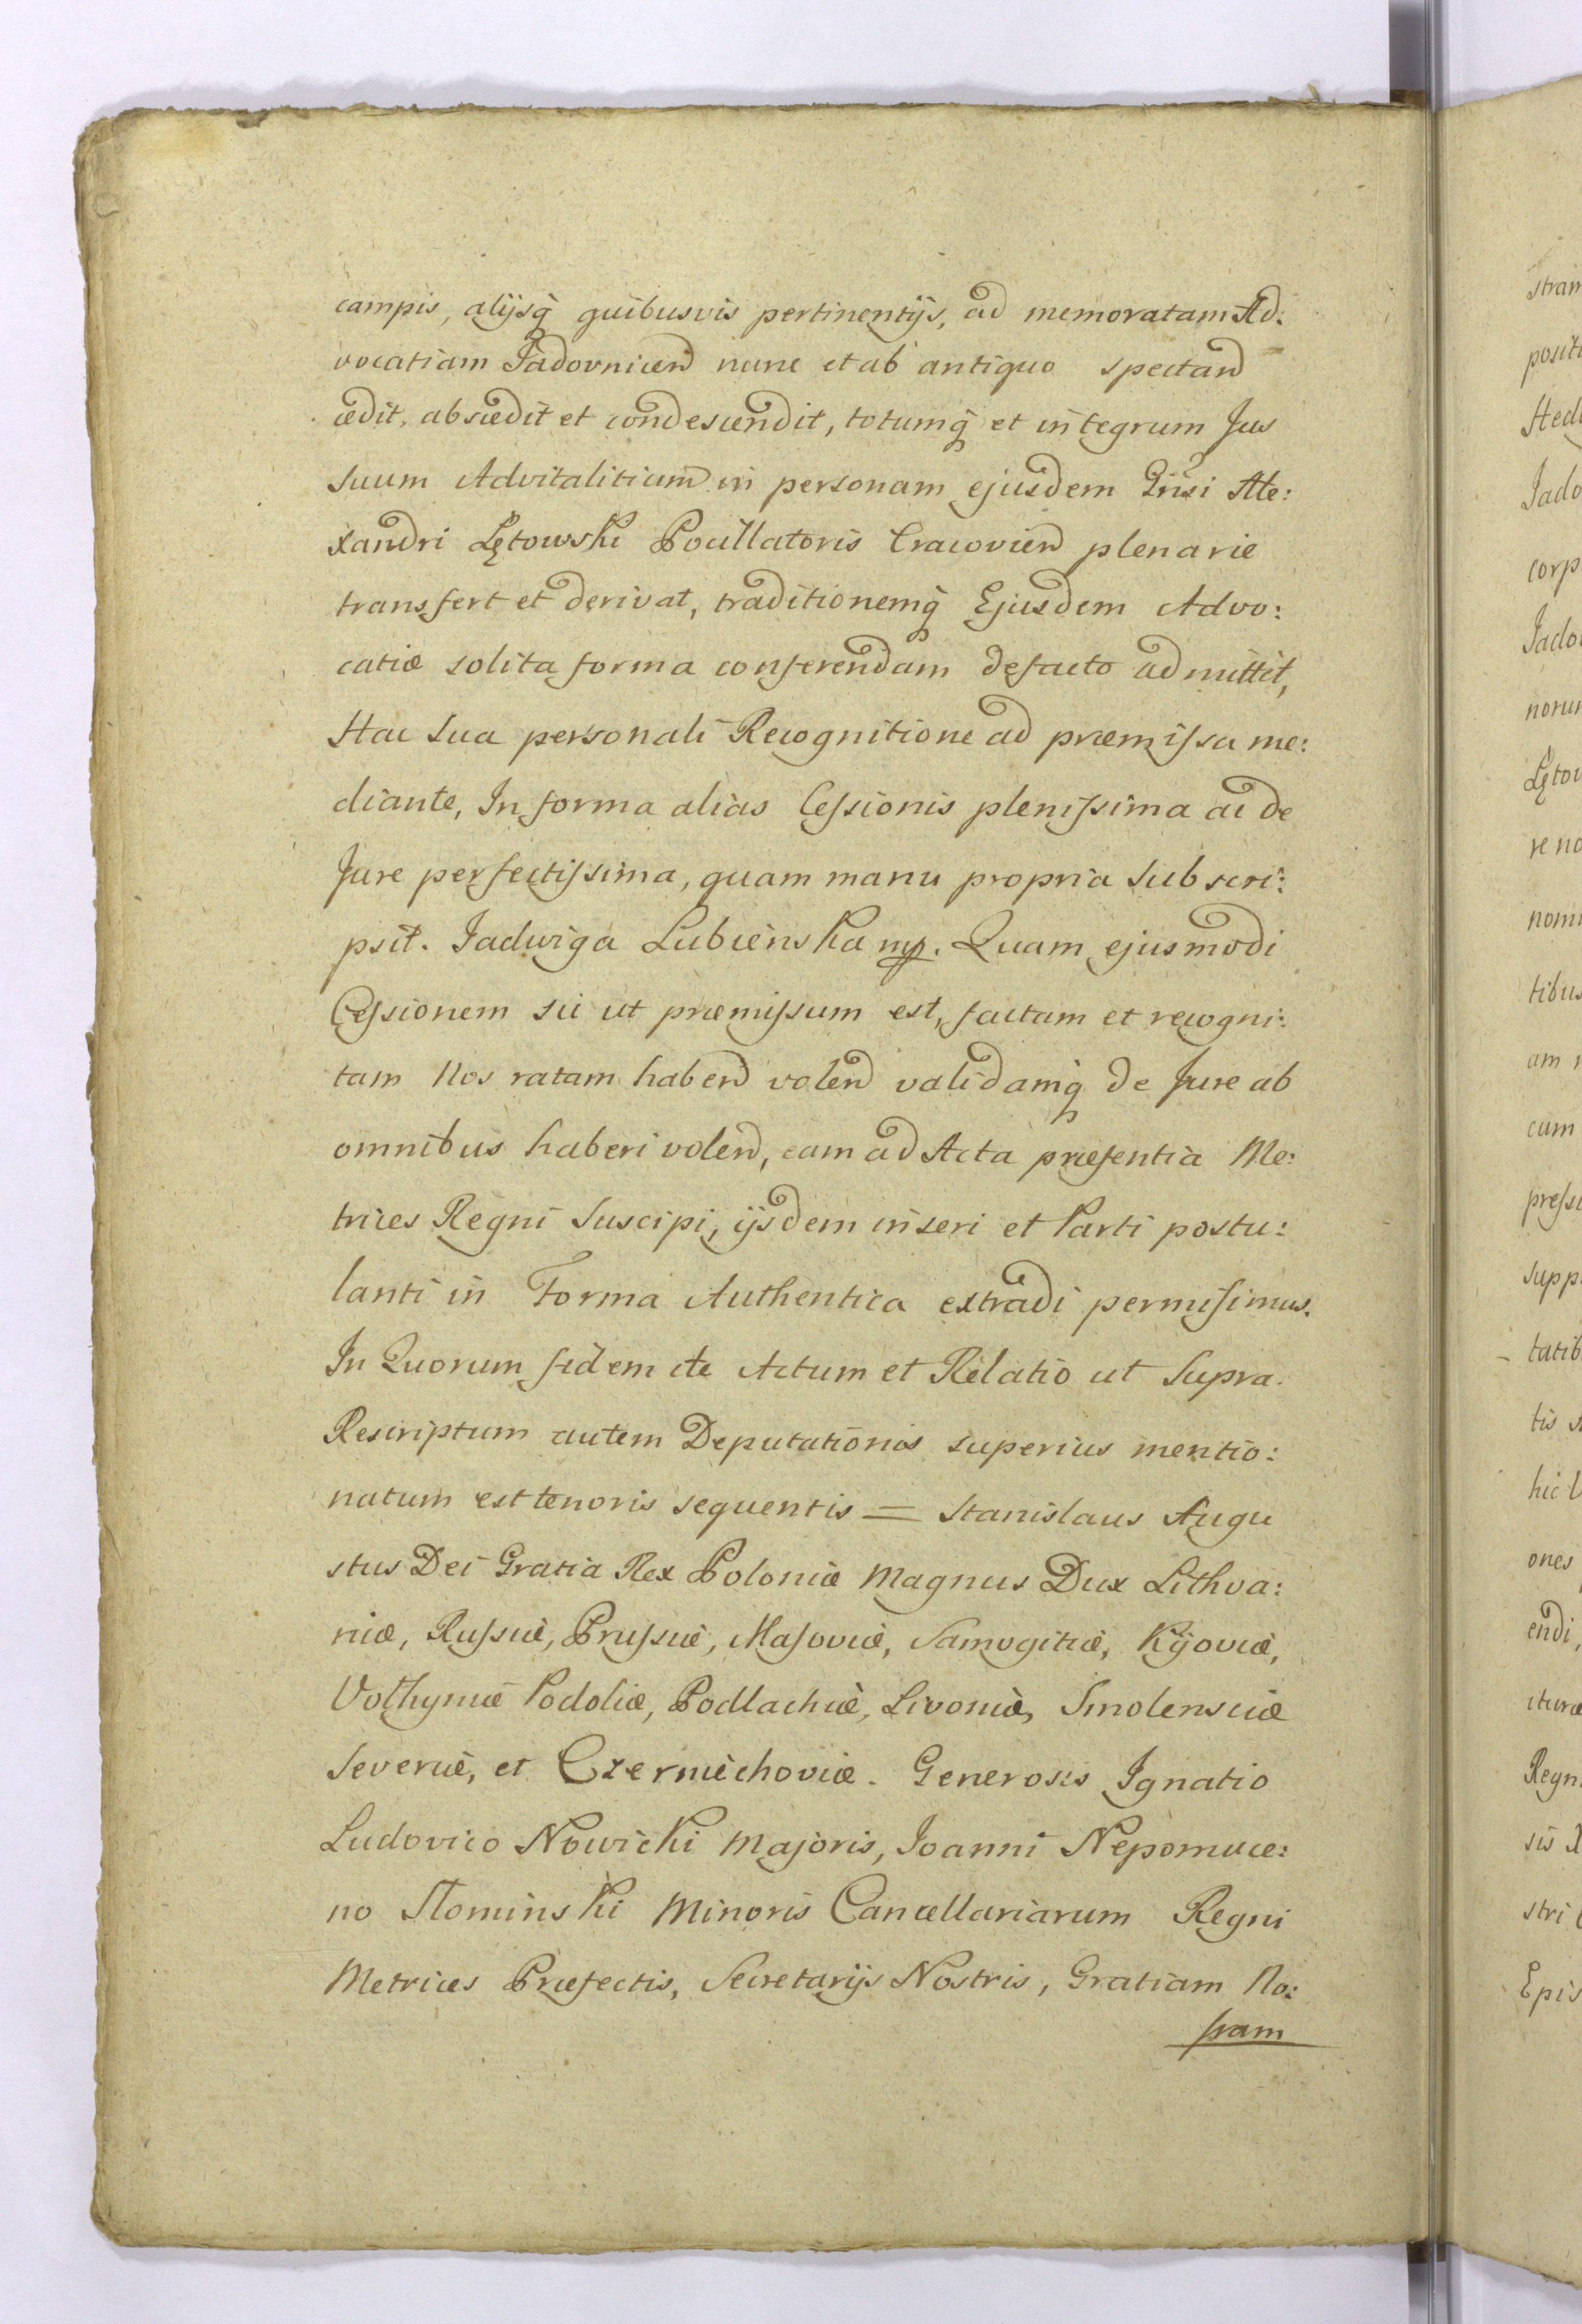 campis, alijsq̃ quibusvis pertinentijs, ad memoratam Ad:
vocatiam Jadovnicen̄ nunc et ab antiquo spectan̄
cedit, abscedit et condescendit, totumq̃ et integrum Jus
suum Advitalitium in personam ejusdem Gn̄si Ale:
xandri Łętowski Pocillatoris Cracovien̄ plenarie
transfert et derivat, traditionemq̃ Ejusdem Advo:
catiæ solita forma conferendam defacto admittit,
Hac sua personali Recognitione ad præmissa me:
diante, In forma alias Cessionis plenissima ac de
Jure perfectissima, quam manu propria subscri:
psit. Jadwiga Lubienska mp. Quam ejusmodi
Cessionem sic ut præmissum est, factam et recogni:
tam Nos ratam haben̄ volen̄ validamq̃ de Jure ab
omnibus haberi volen̄, eam ad Acta præsentia Me:
trices Regni Suscipi, ijsdem inseri et Parti postu:
lanti in Forma Authentica extradi permisimus.
In Quorum fidem etc Actum et Relatio ut Supra.
Rescriptum autem Deputationis superius mentio:
natum est tenoris sequentis = Stanislaus Augu
stus Dei Gratia Rex Poloniæ Magnus Dux Lithva:
niæ, Russiæ, Prussiæ, Masoviæ, Samogitiæ, Kijoviæ,
Volhyniæ Podoliæ, Podlachiæ, Livoniæ, Smolensciæ
Severiæ, et Czerniechoviæ. Generosis Ignatio
Ludovico Nowicki Majoris, Joanni Nepomuce:
no Słominski Minoris Cancellariarum Regni
Metrices Præfectis, Secretarijs Nostris, Gratiam No:
stram
stram
posit
Hed
Jado
corp
Jado
norum
Łętow
re no
nomi
tibus
am
cum
press
supp
tatib
tis s
hic
ones
endi,
cturæ
Regn
sis
stri
Epis